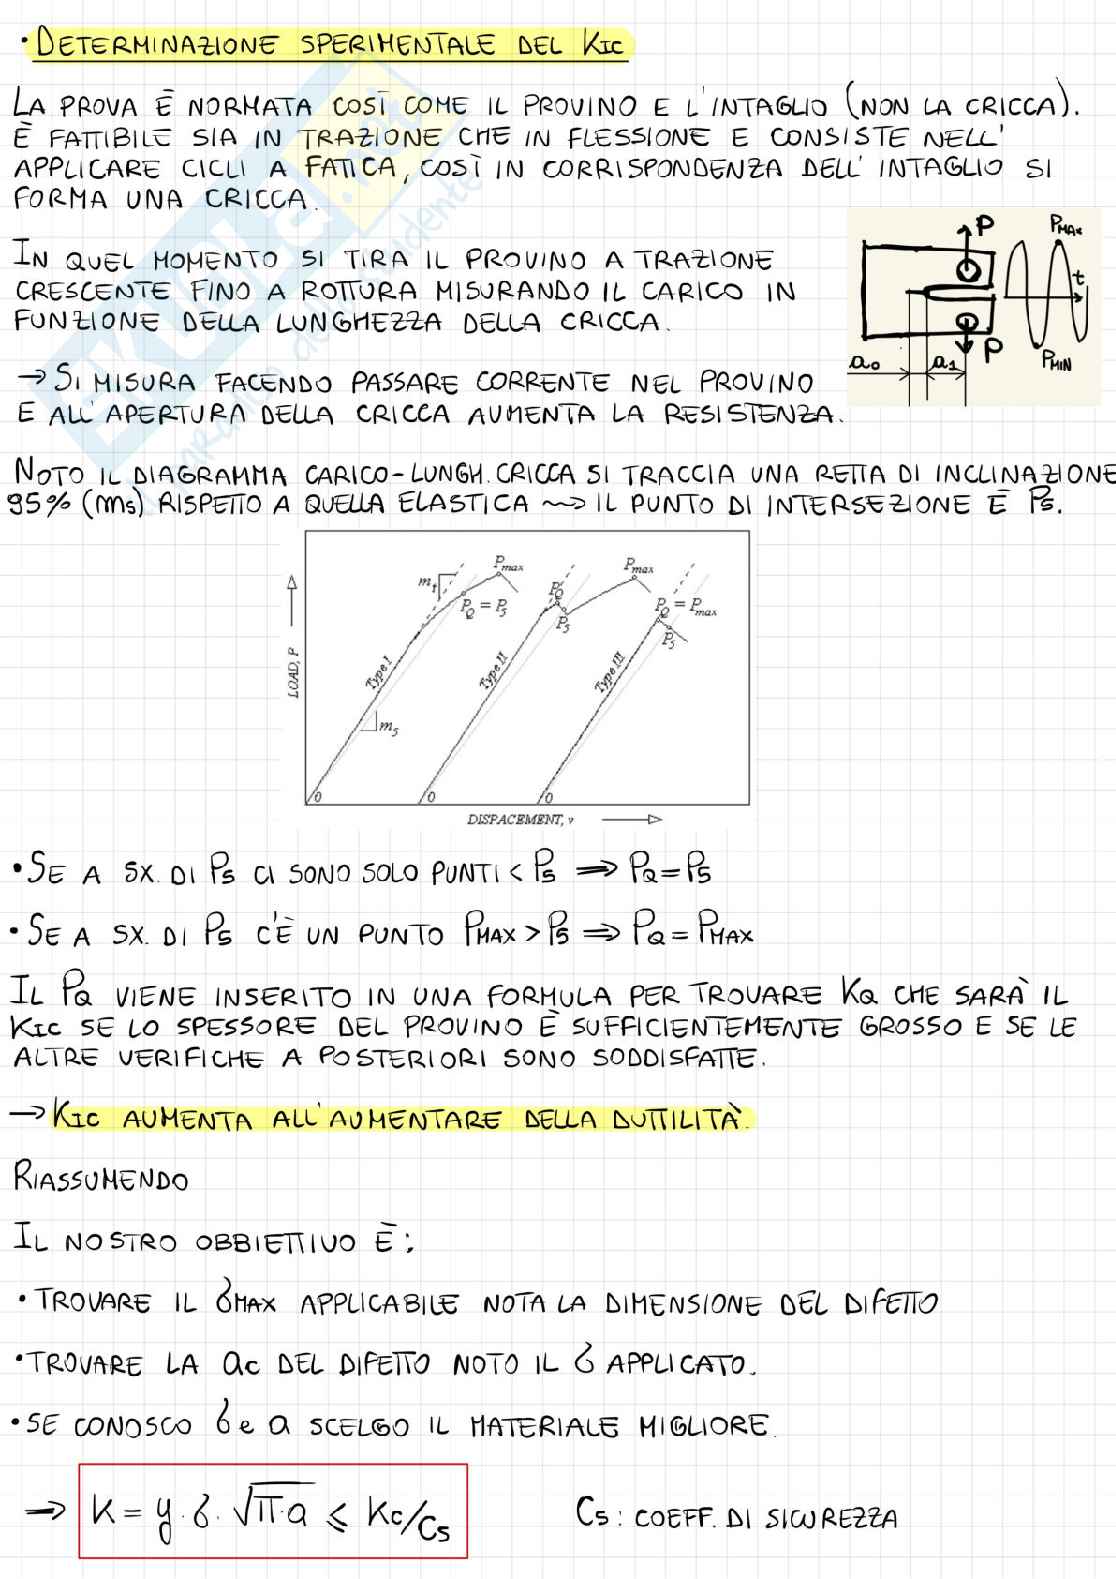 • DETERMINAZIONE SPERIMENTALE DEL KIC
LA PROVA È NORMATA COSÌ COME IL PROVINO E L'INTAGLIO (NON LA CRICCA).
È FATTIBILE SIA IN TRAZIONE CHE IN FLESSIONE E CONSISTE NELL'
APPLICARE CICLI A FATICA, COSÌ IN CORRISPONDENZA DELL'INTAGLIO SI
FORMA UNA CRICCA.
IN QUEL MOMENTO SI TIRA IL PROVINO A TRAZIONE
CRESCENTE FINO A ROTTURA MISURANDO IL CARICO IN
FUNZIONE DELLA LUNGHEZZA DELLA CRICCA.
→ SI MISURA FACENDO PASSARE CORRENTE NEL PROVINO
E ALL'APERTURA DELLA CRICCA AUMENTA LA RESISTENZA.
P
PMAX
t
a0
a1
P
PMIN
NOTO IL DIAGRAMMA CARICO-LUNGH. CRICCA SI TRACCIA UNA RETTA DI INCLINAZIONE
95% (m5) RISPETTO A QUELLA ELASTICA ⇝ IL PUNTO DI INTERSEZIONE È P5.
LOAD, P
mt
Pmax
PQ = P5
Type I
m5
0
PQ
P5
Pmax
Type II
0
PQ = Pmax
P5
Type III
0
DISPACEMENT, v
• SE A SX. DI P5 CI SONO SOLO PUNTI < P5 ⇒ PQ = P5
• SE A SX. DI P5 C'È UN PUNTO PMAX > P5 ⇒ PQ = PMAX
IL PQ VIENE INSERITO IN UNA FORMULA PER TROVARE KQ CHE SARÀ IL
KIC SE LO SPESSORE DEL PROVINO È SUFFICIENTEMENTE GROSSO E SE LE
ALTRE VERIFICHE A POSTERIORI SONO SODDISFATTE.
→ KIC AUMENTA ALL'AUMENTARE DELLA DUTTILITÀ.
RIASSUMENDO
IL NOSTRO OBBIETTIVO È:
• TROVARE IL σMAX APPLICABILE NOTA LA DIMENSIONE DEL DIFETTO
• TROVARE LA ac DEL DIFETTO NOTO IL σ APPLICATO.
• SE CONOSCO σ e a SCELGO IL MATERIALE MIGLIORE.
→ K = y · σ · √π·a ⩽ Kc/Cs
Cs: COEFF. DI SICUREZZA